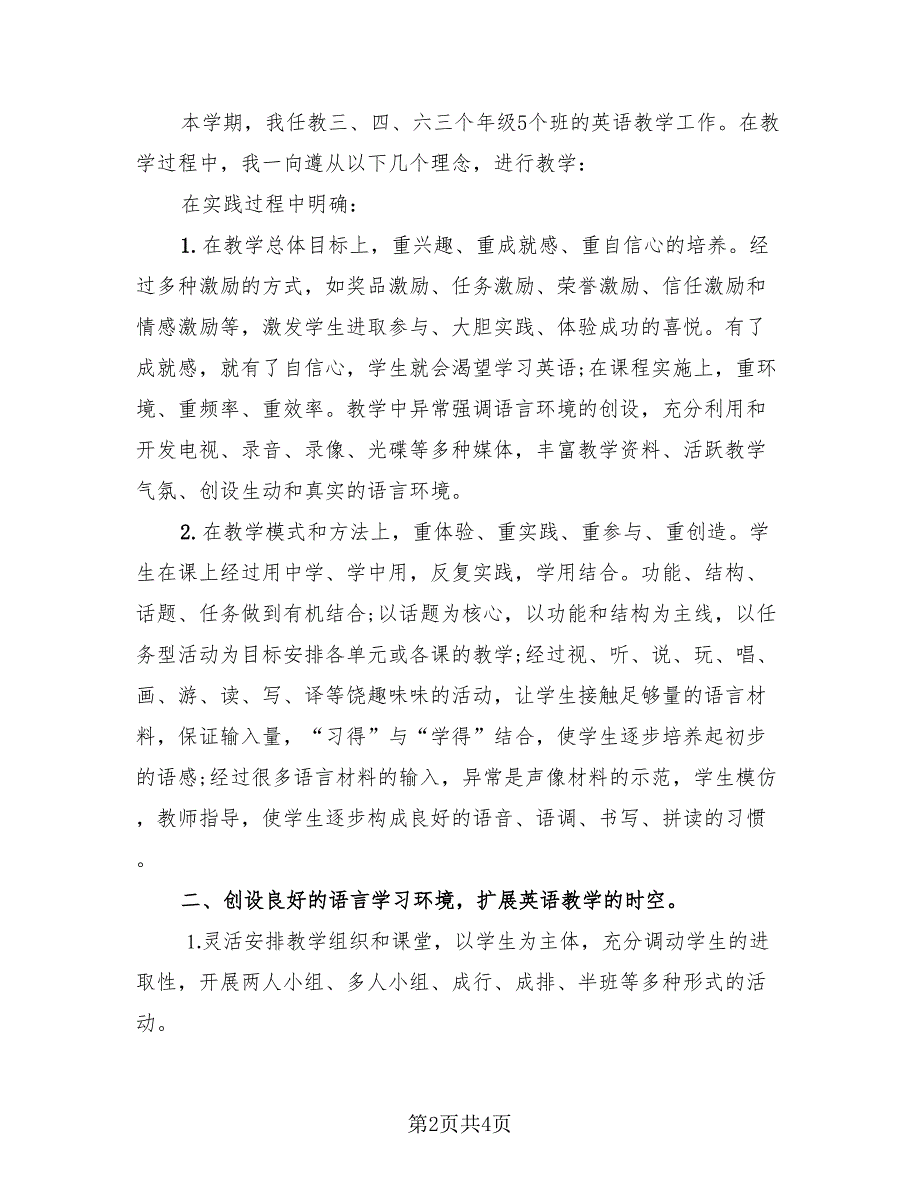 本学期，我任教三、四、六三个年级5个班的英语教学工作。在教
学过程中，我一向遵从以下几个理念，进行教学：
在实践过程中明确：
1. 在教学总体目标上，重兴趣、重成就感、重自信心的培养。经
过多种激励的方式，如奖品激励、任务激励、荣誉激励、信任激励和
情感激励等，激发学生进取参与、大胆实践、体验成功的喜悦。有了
成就感，就有了自信心，学生就会渴望学习英语;在课程实施上，重环
境、重频率、重效率。教学中异常强调语言环境的创设，充分利用和
开发电视、录音、录像、光碟等多种媒体，丰富教学资料、活跃教学
气氛、创设生动和真实的语言环境。
2. 在教学模式和方法上，重体验、重实践、重参与、重创造。学
生在课上经过用中学、学中用，反复实践，学用结合。功能、结构、
话题、任务做到有机结合;以话题为核心，以功能和结构为主线，以任
务型活动为目标安排各单元或各课的教学;经过视、听、说、玩、唱、
画、游、读、写、译等饶趣味味的活动，让学生接触足够量的语言材
料，保证输入量，“习得”与“学得”结合，使学生逐步培养起初步
的语感;经过很多语言材料的输入，异常是声像材料的示范，学生模仿
，教师指导，使学生逐步构成良好的语音、语调、书写、拼读的习惯
。
二、创设良好的语言学习环境，扩展英语教学的时空。
1.灵活安排教学组织和课堂，以学生为主体，充分调动学生的进
取性，开展两人小组、多人小组、成行、成排、半班等多种形式的活
动。
第2页共4页